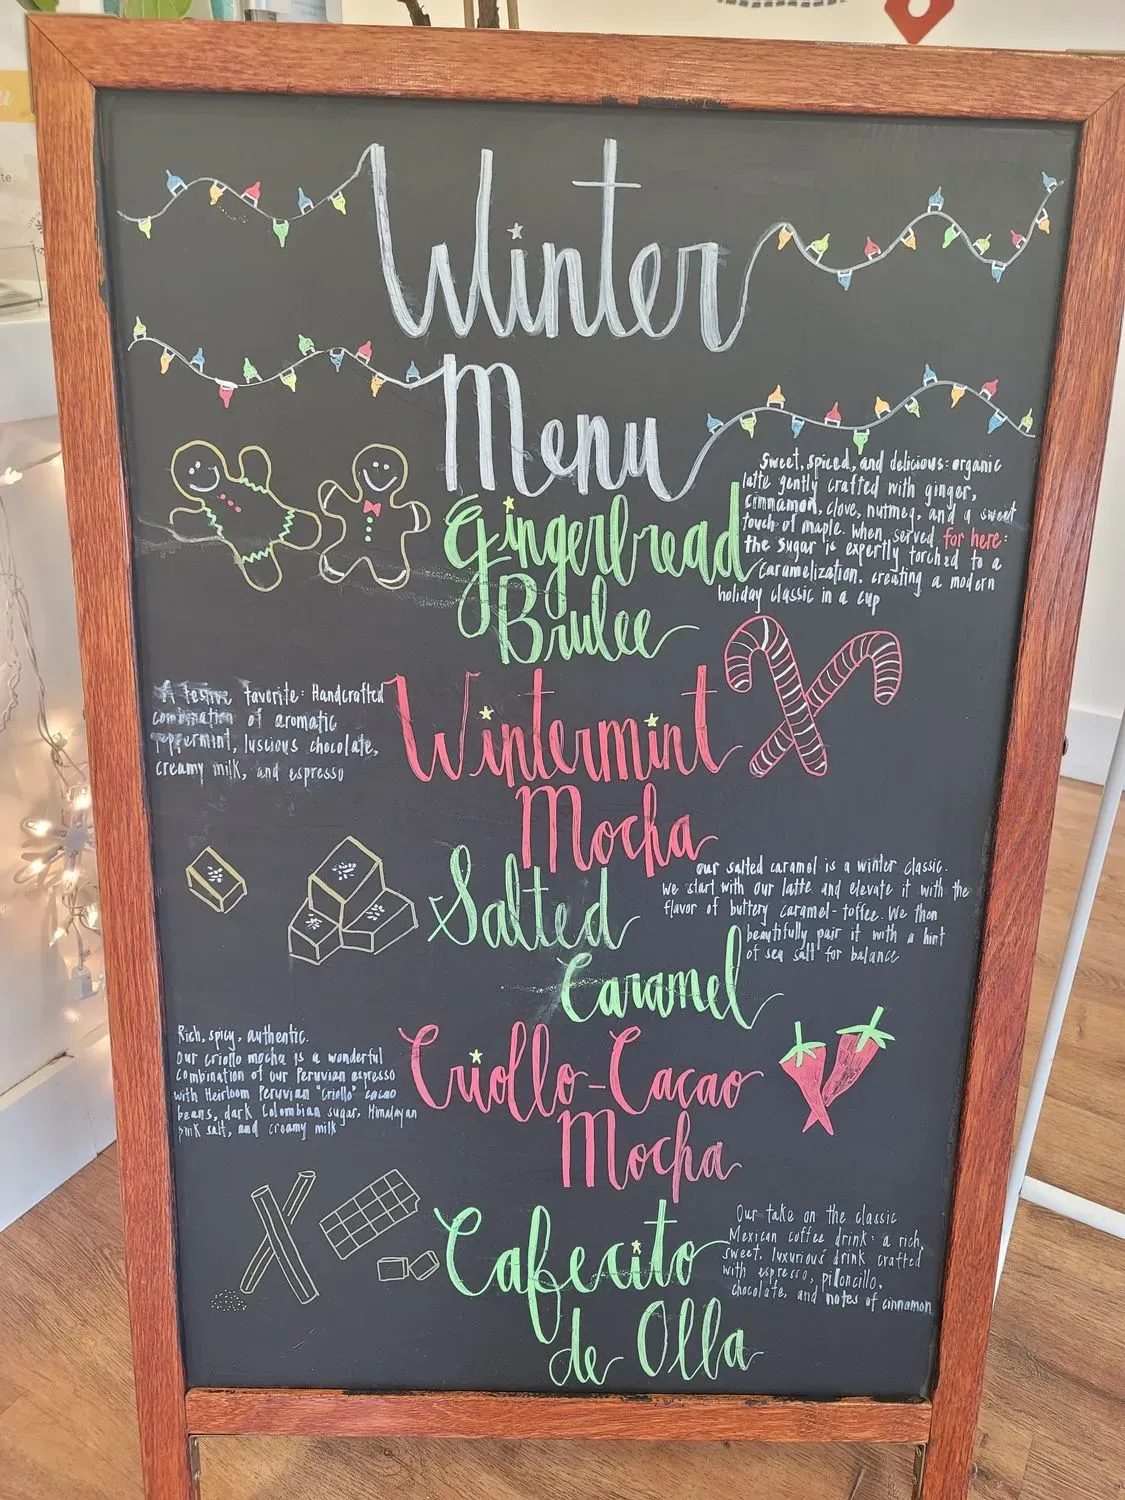 Winter
Menu
Gingerbread
Brulee
Sweet, spiced, and delicious: organic
latte gently crafted with ginger,
cinnamon, clove, nutmeg, and a sweet
touch of maple. When served for here:
the sugar is expertly torched to a
caramelization, creating a modern
holiday classic in a cup
Wintermint
Mocha
A festive favorite: Handcrafted
combination of aromatic
peppermint, luscious chocolate,
creamy milk, and espresso
Salted
Caramel
our salted caramel is a winter classic.
we start with our latte and elevate it with the
flavor of buttery caramel-toffee. We then
beautifully pair it with a hint
of sea salt for balance
Criollo-Cacao
Mocha
Rich, spicy, authentic.
Our criollo mocha is a wonderful
combination of our Peruvian espresso
with Heirloom Peruvian "criollo" cacao
beans, dark Colombian sugar, Himalayan
pink salt, and creamy milk
Cafecito
de Olla
Our take on the classic
Mexican coffee drink: a rich,
sweet, luxurious drink crafted
with espresso, piloncillo,
chocolate, and notes of cinnamon